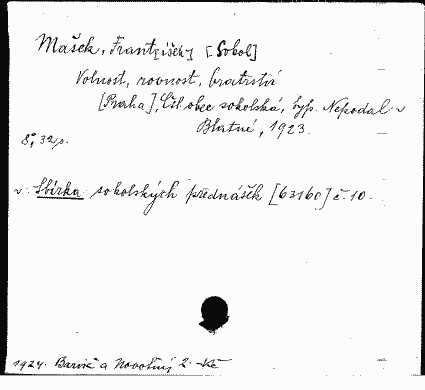 Mašek, Frant[išek] [Sobol]
Volnost, rovnost, bratrství
[Praha], Čsl. obec sokolská, typ. Nepodal v
Blatné, 1923.
8°, 32 p.
v Sbírka sokolských přednášek [6316c] č. 10.
1924. Barvič a Novotný 2.- Kč